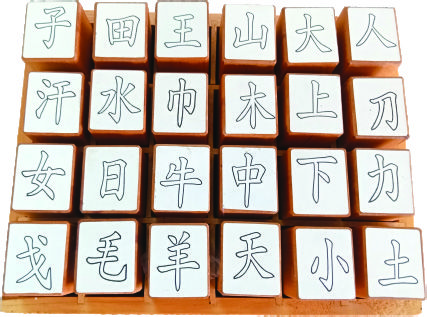 子田王山大人
汗水巾木上刀
女日牛中下力
戈毛羊天小土